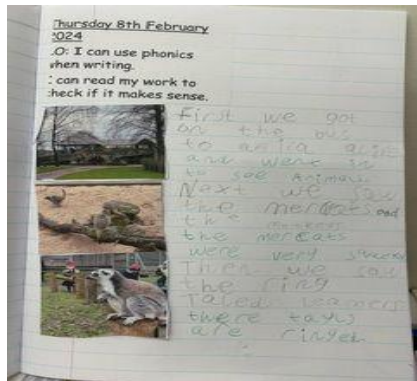 Thursday 8th February
2024
LO: I can use phonics
when writing.
I can read my work to
check if it makes sense.
First we got
on the bus
to
and went in
to see Animals
Next we saw
the mercats and
the
the mercats
were very
Then we saw
the ring
Taled leamers
there tayls
are